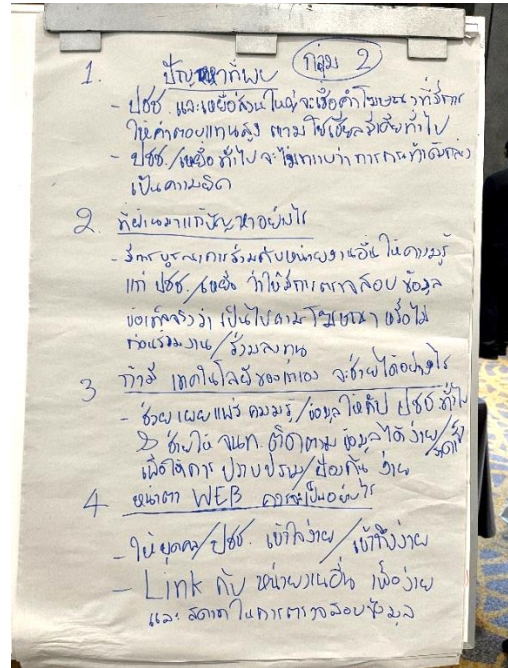 1. ปัญหาที่พบ กลุ่ม 2
- ปชช. และเหยื่อส่วนใหญ่จะเชื่อคำโฆษณาที่มีการ
ให้ค่าตอบแทนสูง ตามโซเชียลมีเดียทั่วไป
- ปชช./เหยื่อทั่วไป จะไม่ทราบว่าการกระทำดังกล่าว
เป็นความผิด
2. ที่ผ่านมาแก้ปัญหาอย่างไร
- มีการบูรณาการร่วมกับหน่วยงานอื่น ให้ความรู้
แก่ ปชช./เหยื่อ ว่าให้มีการตรวจสอบ ข้อมูล
ข้อเท็จจริงว่า เป็นไปตามโฆษณา หรือไม่
ก่อนร่วมงาน/ร่วมลงทุน
3 ถ้ามี เทคโนโลยี จะช่วยได้อย่างไร
- ช่วยเผยแพร่ ความรู้/ข้อมูล ให้กับ ปชช ทั่วไป
& ช่วยให้ จนท. ติดตาม ข้อมูลได้ง่าย/
เพื่อให้การ ปราบปราม/ป้องกัน ง่าย
4 หน้าตา WEB ควรจะเป็นอย่างไร
- ให้บุคคล/ปชช. เข้าใจง่าย/เข้าถึงง่าย
- Link กับ หน่วยงานอื่น เพื่อง่าย
และ สะดวกในการตรวจสอบข้อมูล